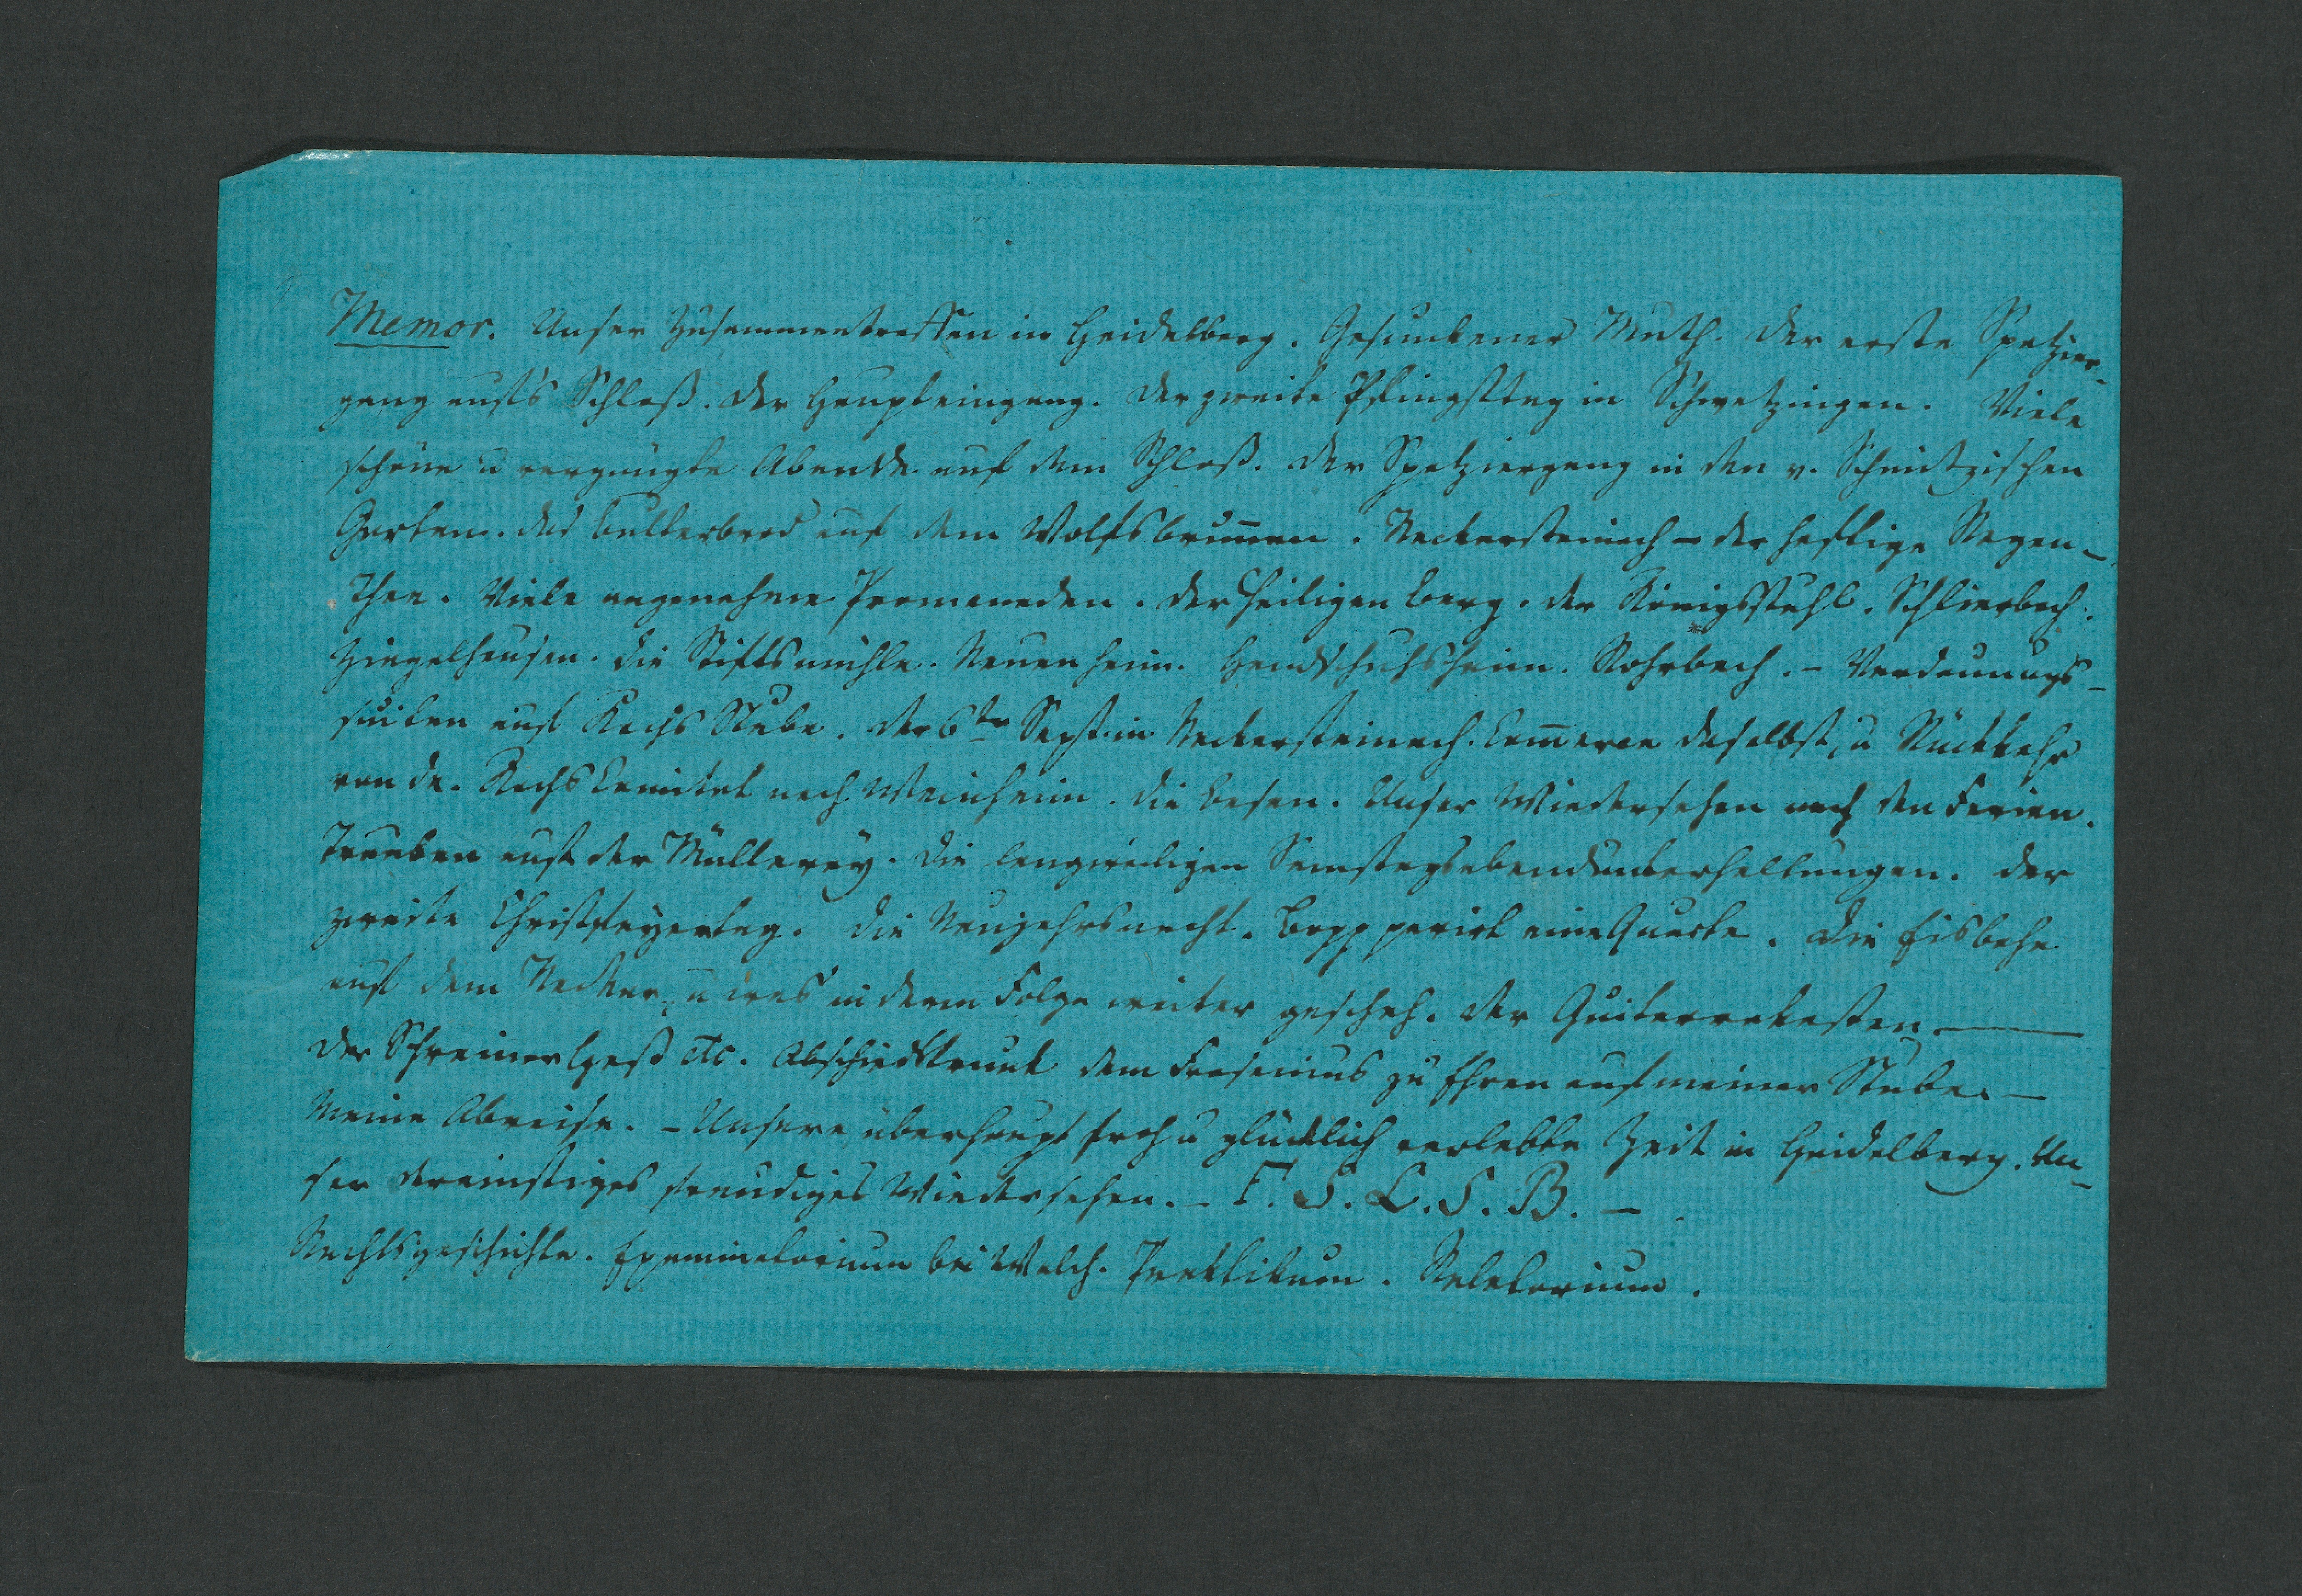 Memor. Unser Zusammentreffen in Heidelberg. Gesunkener Muth. Der erste Spatzier-
gang auf's Schloß. Der Haupteingang. Der zweite Pfingsttag in Schwetzingen. Viele
schöne u vergnügte Abende auf dem Schloß. Der Spatziergang in den v. Schmitzischen
Garten. Das Butterbrod auf dem Wolfsbrunnen. Neckersteinach – der heftige Regen –
Thee. Viele angenehme Promenaden. Der Heiligen berg. der Königsstuhl. Schlierbach.
Ziegelhausen. Die Stiftsmühle. Neuenheim. Handschuhsheim. Rohrbach. – Verdauungs-
suiten auf Kochs Stube. Der 6te Sept. in Neckersteinach. Commerce daselbst, u Rückkehr
von da. Kochs Comitat nach Weinheim. Die Besen. Unser Wiedersehen nach den Ferien.
Trauben auf der Müllerey. Die langweiligen Samstagsabendunterhaltungen. Der
zweite Christfeyertag. Die Neujahrsnacht. Bopp parirt eine Quarte. Die Eisbahn
auf dem Necker, u was in deren Folge weiter geschah. Der Guitarrekasten. –
Der Schreiner Heß etc. Abschiedstrunk dem Fresenius zu Ehren auf meiner Stube. –
Meine Abreise. – Unsere überhaupt froh u glücklich verlebte Zeit in Heidelberg. Un-
ser dereinstiges freudiges Wiedersehen. – F. S. L. S. B. –
Rechtsgeschichte. Examinatorium bei Walch. Praktikum. Relatorium.